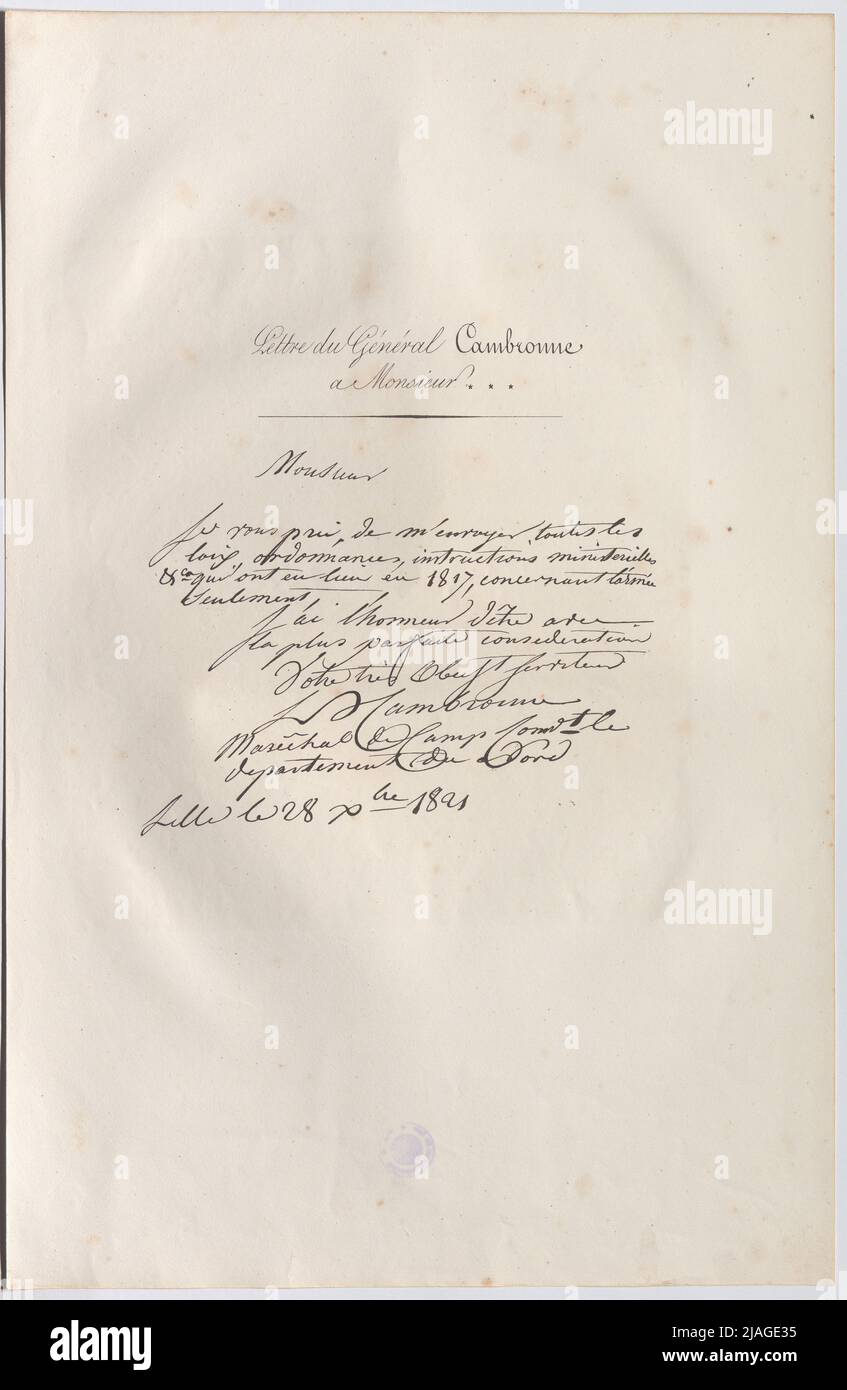 Lettre du Général Cambronne
a Monsieur * * *
Monsieur
Je vous prie, de m'envoyer, toutes les
loix, ordonnances, instructions ministerielles
&ca qui ont eu lieu en 1817, concernant l'armée
seulement,
J'ai l'honneur d'être avec
la plus parfaite consideration
Votre très Obeist serviteur
Cambronne
Maréchal de Camp Comdt le
departement du Nord
Lille le 28 Xbre 1821
alamy
Image ID: 2JAGE35
www.alamy.com